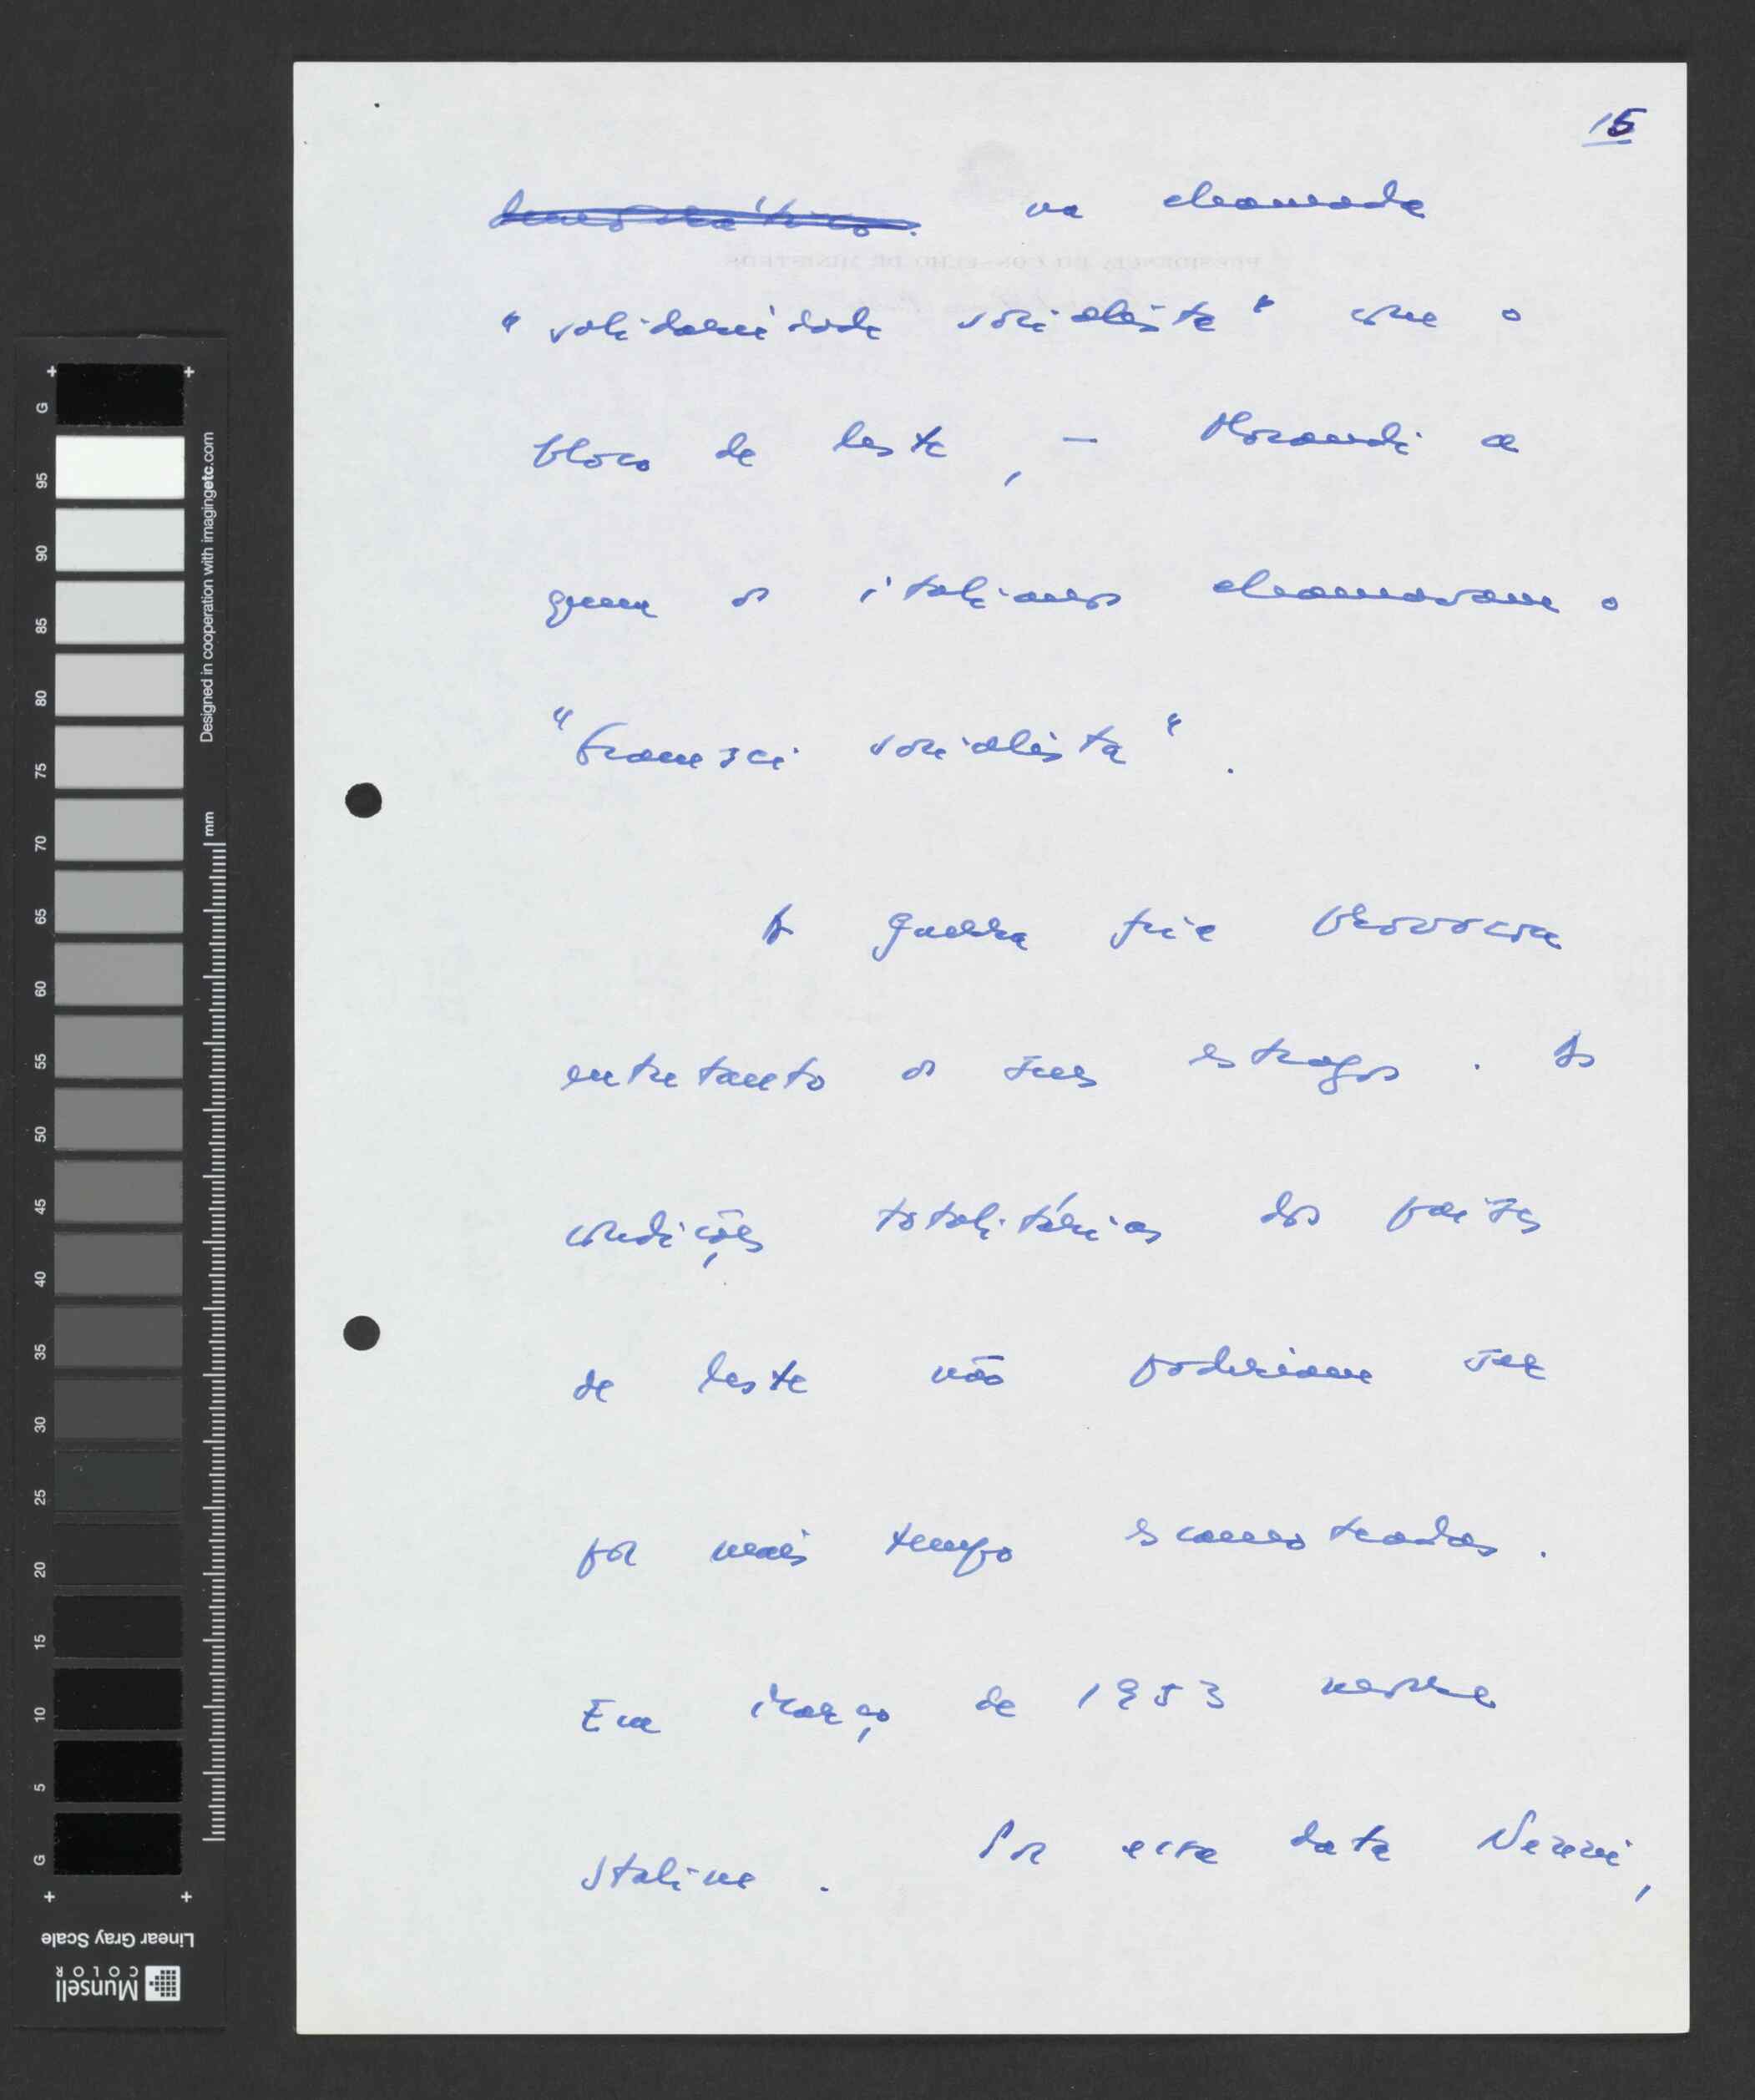 15
democrático. na chamada
"solidariedade socialista" com o
bloco de leste, — Morandi a
quem os italianos chamavam o
"Gramsci socialista".
A guerra fria provocou
entretanto os seus estragos. As
condições totalitárias dos países
de leste não poderiam ser
por mais tempo escamoteadas.
Em Março de 1953 morre
Staline. Por essa data Nenni,
PRESIDÊNCIA DO CONSELHO DE MINISTROS
G 95 90 85 80 75 70 65 60 55 50 45 40 35 30 25 20 15 10 5 G
Designed in cooperation with imagingetc.com
mm
Linear Gray Scale
Munsell
COLOR